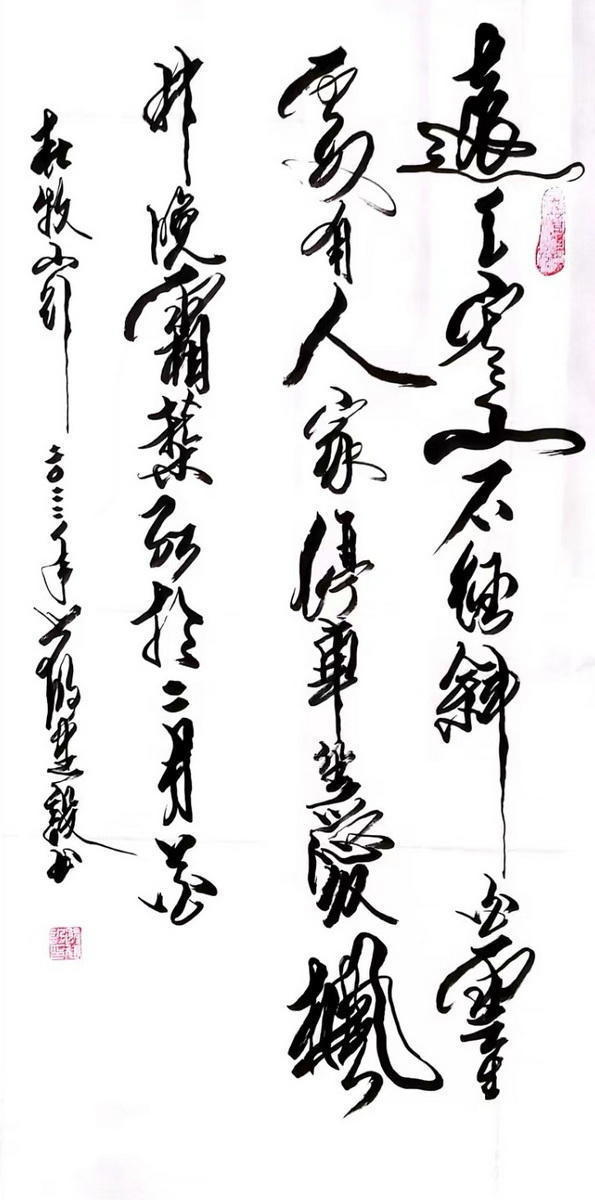 遠上寒山石徑斜白雲生
處有人家停車坐愛楓
林晚霜葉紅於二月花
杜牧山行二〇二二年楚毅书